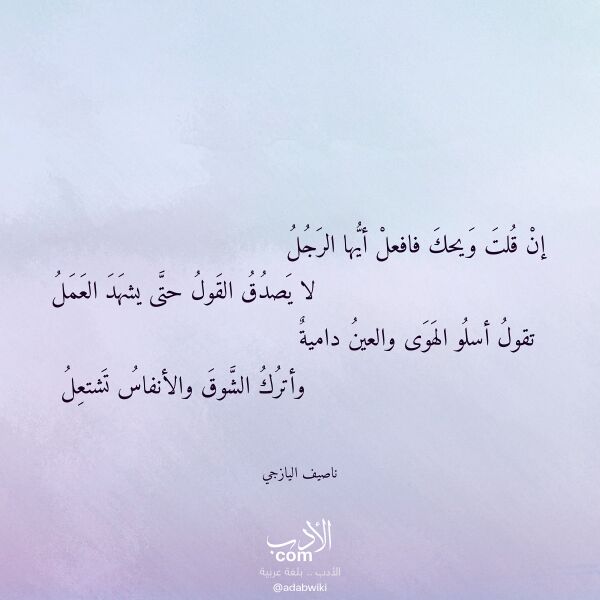 إنْ قُلتَ وَيحكَ فافعلْ أيُّها الرَجُلُ
لا يَصدُقُ القَولُ حتَّى يشهَدَ العَمَلُ
تقولُ أسلُو الهَوَى والعينُ داميةٌ
وأترُكُ الشَّوقَ والأنفاسُ تَشتعِلُ
ناصيف اليازجي
الأدب
com
الأدب .. بلغة عربية
@adabwiki